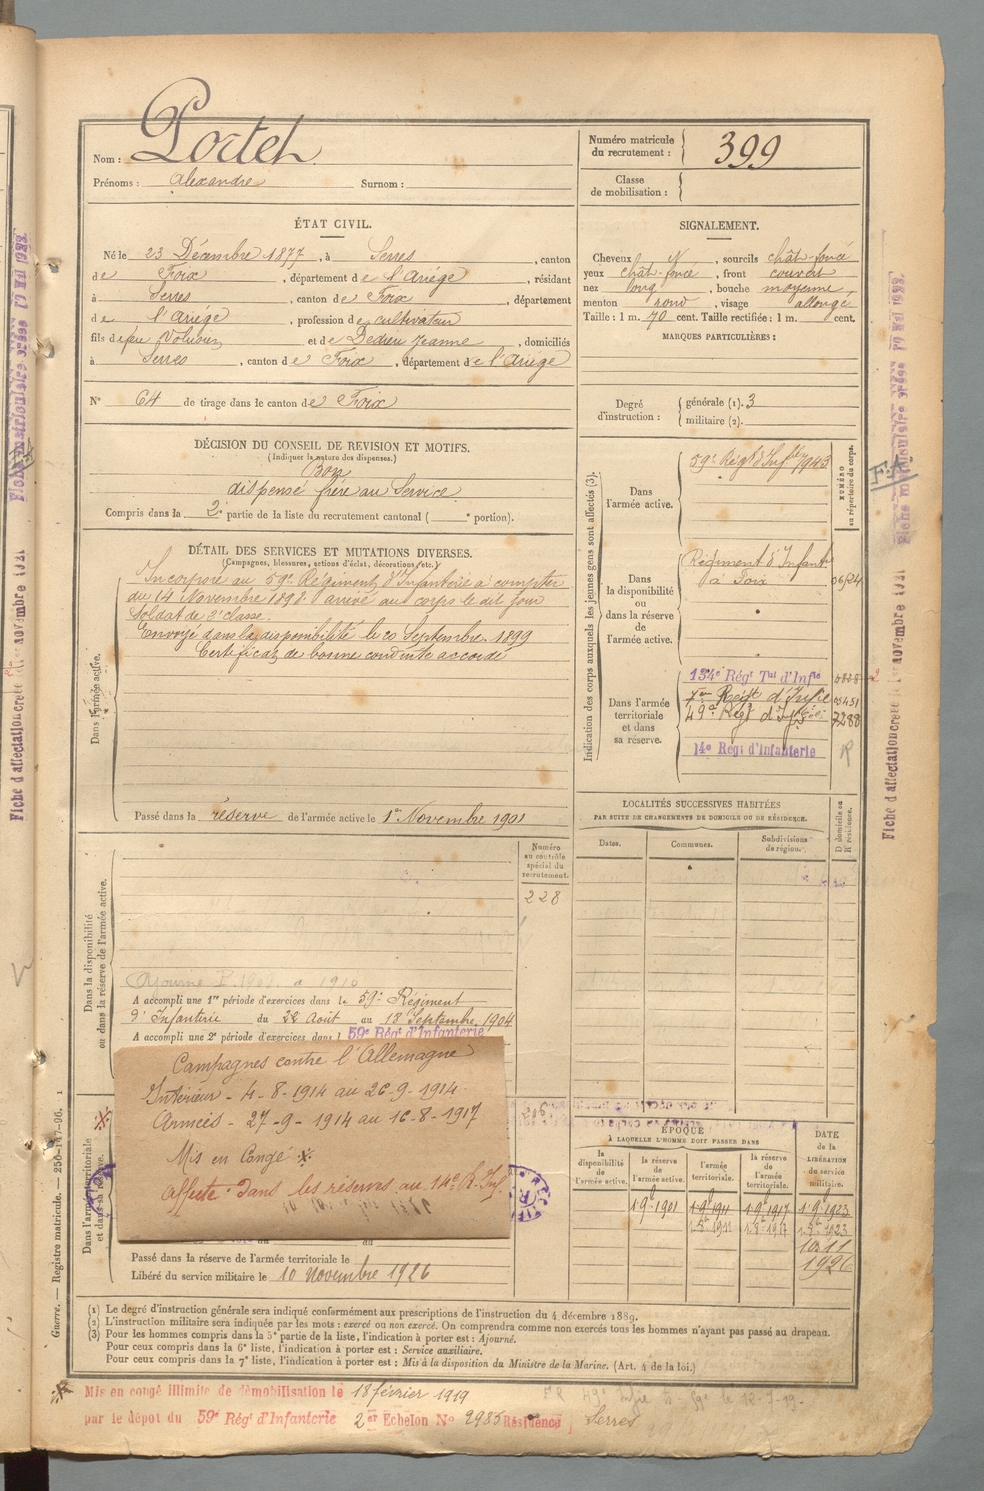 Nom : Portet
Prénoms : Alexandre Surnom :
Numéro matricule du recrutement : 399
Classe de mobilisation :
ÉTAT CIVIL.
Né le 23 Décembre 1877, à Serres, canton
de Foix, département de l'Ariége, résidant
à Serres, canton de Foix, département
de l'Ariége, profession de cultivateur
fils de feu Volusien et de Dedieu Jeanne, domiciliés
à Serres, canton de Foix, département de l'Ariége
N° 64 de tirage dans le canton de Foix
SIGNALEMENT.
Cheveux N, sourcils chât-foncé
yeux chât-foncé, front couvert
nez long, bouche moyenne
menton rond, visage allongé
Taille : 1 m. 70 cent. Taille rectifiée : 1 m. cent.
MARQUES PARTICULIÈRES :
Degré d'instruction : générale (1). 3
militaire (2).
DÉCISION DU CONSEIL DE REVISION ET MOTIFS.
(Indiquer la nature des dispenses.)
Bon
dispensé frère au Service
Compris dans la 2e partie de la liste du recrutement cantonal ( e portion).
DÉTAIL DES SERVICES ET MUTATIONS DIVERSES.
(Campagnes, blessures, actions d'éclat, décorations, etc.)
Dans l'armée active.
Incorporé au 59e Régiment d'Infanterie à compter
du 14 Novembre 1898 arrivé au corps le dit jour
Soldat de 2e classe.
Envoyé dans la disponibilité le 20 Septembre 1899
Certificat de bonne conduite accordé
Passé dans la réserve de l'armée active le 1er Novembre 1901
Indication des corps auxquels les jeunes gens sont affectés (3).
NUMÉRO au répertoire du corps.
Dans l'armée active.
59e Régt d'Inftie 7943
Dans la disponibilité ou dans la réserve de l'armée active.
Régiment d'Infanterie
à Foix
Dans l'armée territoriale et dans sa réserve.
134e Régt Tal d'Infie
Régt d'Infie
49e Régt d'Inf 7288
14e Régt d'Infanterie
LOCALITÉS SUCCESSIVES HABITÉES
PAR SUITE DE CHANGEMENTS DE DOMICILE OU DE RÉSIDENCE.
Dates. Communes. Subdivisions de région.
D domicile ou R résidence.
Dans la disponibilité ou dans la réserve de l'armée active.
Numéro au contrôle spécial du recrutement.
228
A accompli une 1re période d'exercices dans le 59e Régiment
d'Infanterie du 22 Août au 18 Septembre 1904
A accompli une 2e période d'exercices dans l 59e Régt d'Infanterie
Campagnes contre l'Allemagne
Intérieur - 4-8-1914 au 26-9-1914
Armées - 27-9-1914 au 16-8-1917
Mis en Congé
Affecté dans les réserves au 14e R. Inf.
Dans l'armée territoriale et dans sa réserve.
Passé dans la réserve de l'armée territoriale le
Libéré du service militaire le 10 Novembre 1926
ÉPOQUE
À LAQUELLE L'HOMME DOIT PASSER DANS
la disponibilité de l'armée active.
la réserve de l'armée active.
l'armée territoriale.
la réserve de l'armée territoriale.
DATE de la LIBÉRATION du service militaire.
1.9.1901 1.9.1911 1.9.1917 1.9.1923
10.11
1926
(1) Le degré d'instruction générale sera indiqué conformément aux prescriptions de l'instruction du 4 décembre 1889.
(2) L'instruction militaire sera indiquée par les mots : exercé ou non exercé. On comprendra comme non exercés tous les hommes n'ayant pas passé au drapeau.
(3) Pour les hommes compris dans la 5e partie de la liste, l'indication à porter est : Ajourné.
Pour ceux compris dans la 6e liste, l'indication à porter est : Service auxiliaire.
Pour ceux compris dans la 7e liste, l'indication à porter est : Mis à la disposition du Ministre de la Marine. (Art. 4 de la loi.)
Mis en congé illimité de démobilisation le 18 février 1919
par le dépot du 59e Régt d'Infanterie 2er Echelon N° 2985 Résidence Serres
Guerre. — Registre matricule. — 250-147-96.